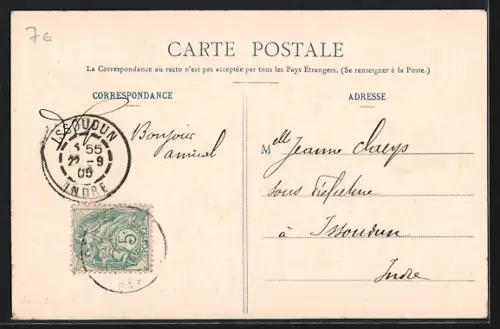 7€
CARTE POSTALE
La Correspondance au recto n'est pas acceptée par tous les Pays Étrangers. (Se renseigner à la Poste.)
CORRESPONDANCE
ADRESSE
ISSOUDUN
55
22-9
05
INDRE
Bonjour
amical
5
Mlle Jeanne Claeys
sous Préfecture
à Issoudun
Indre